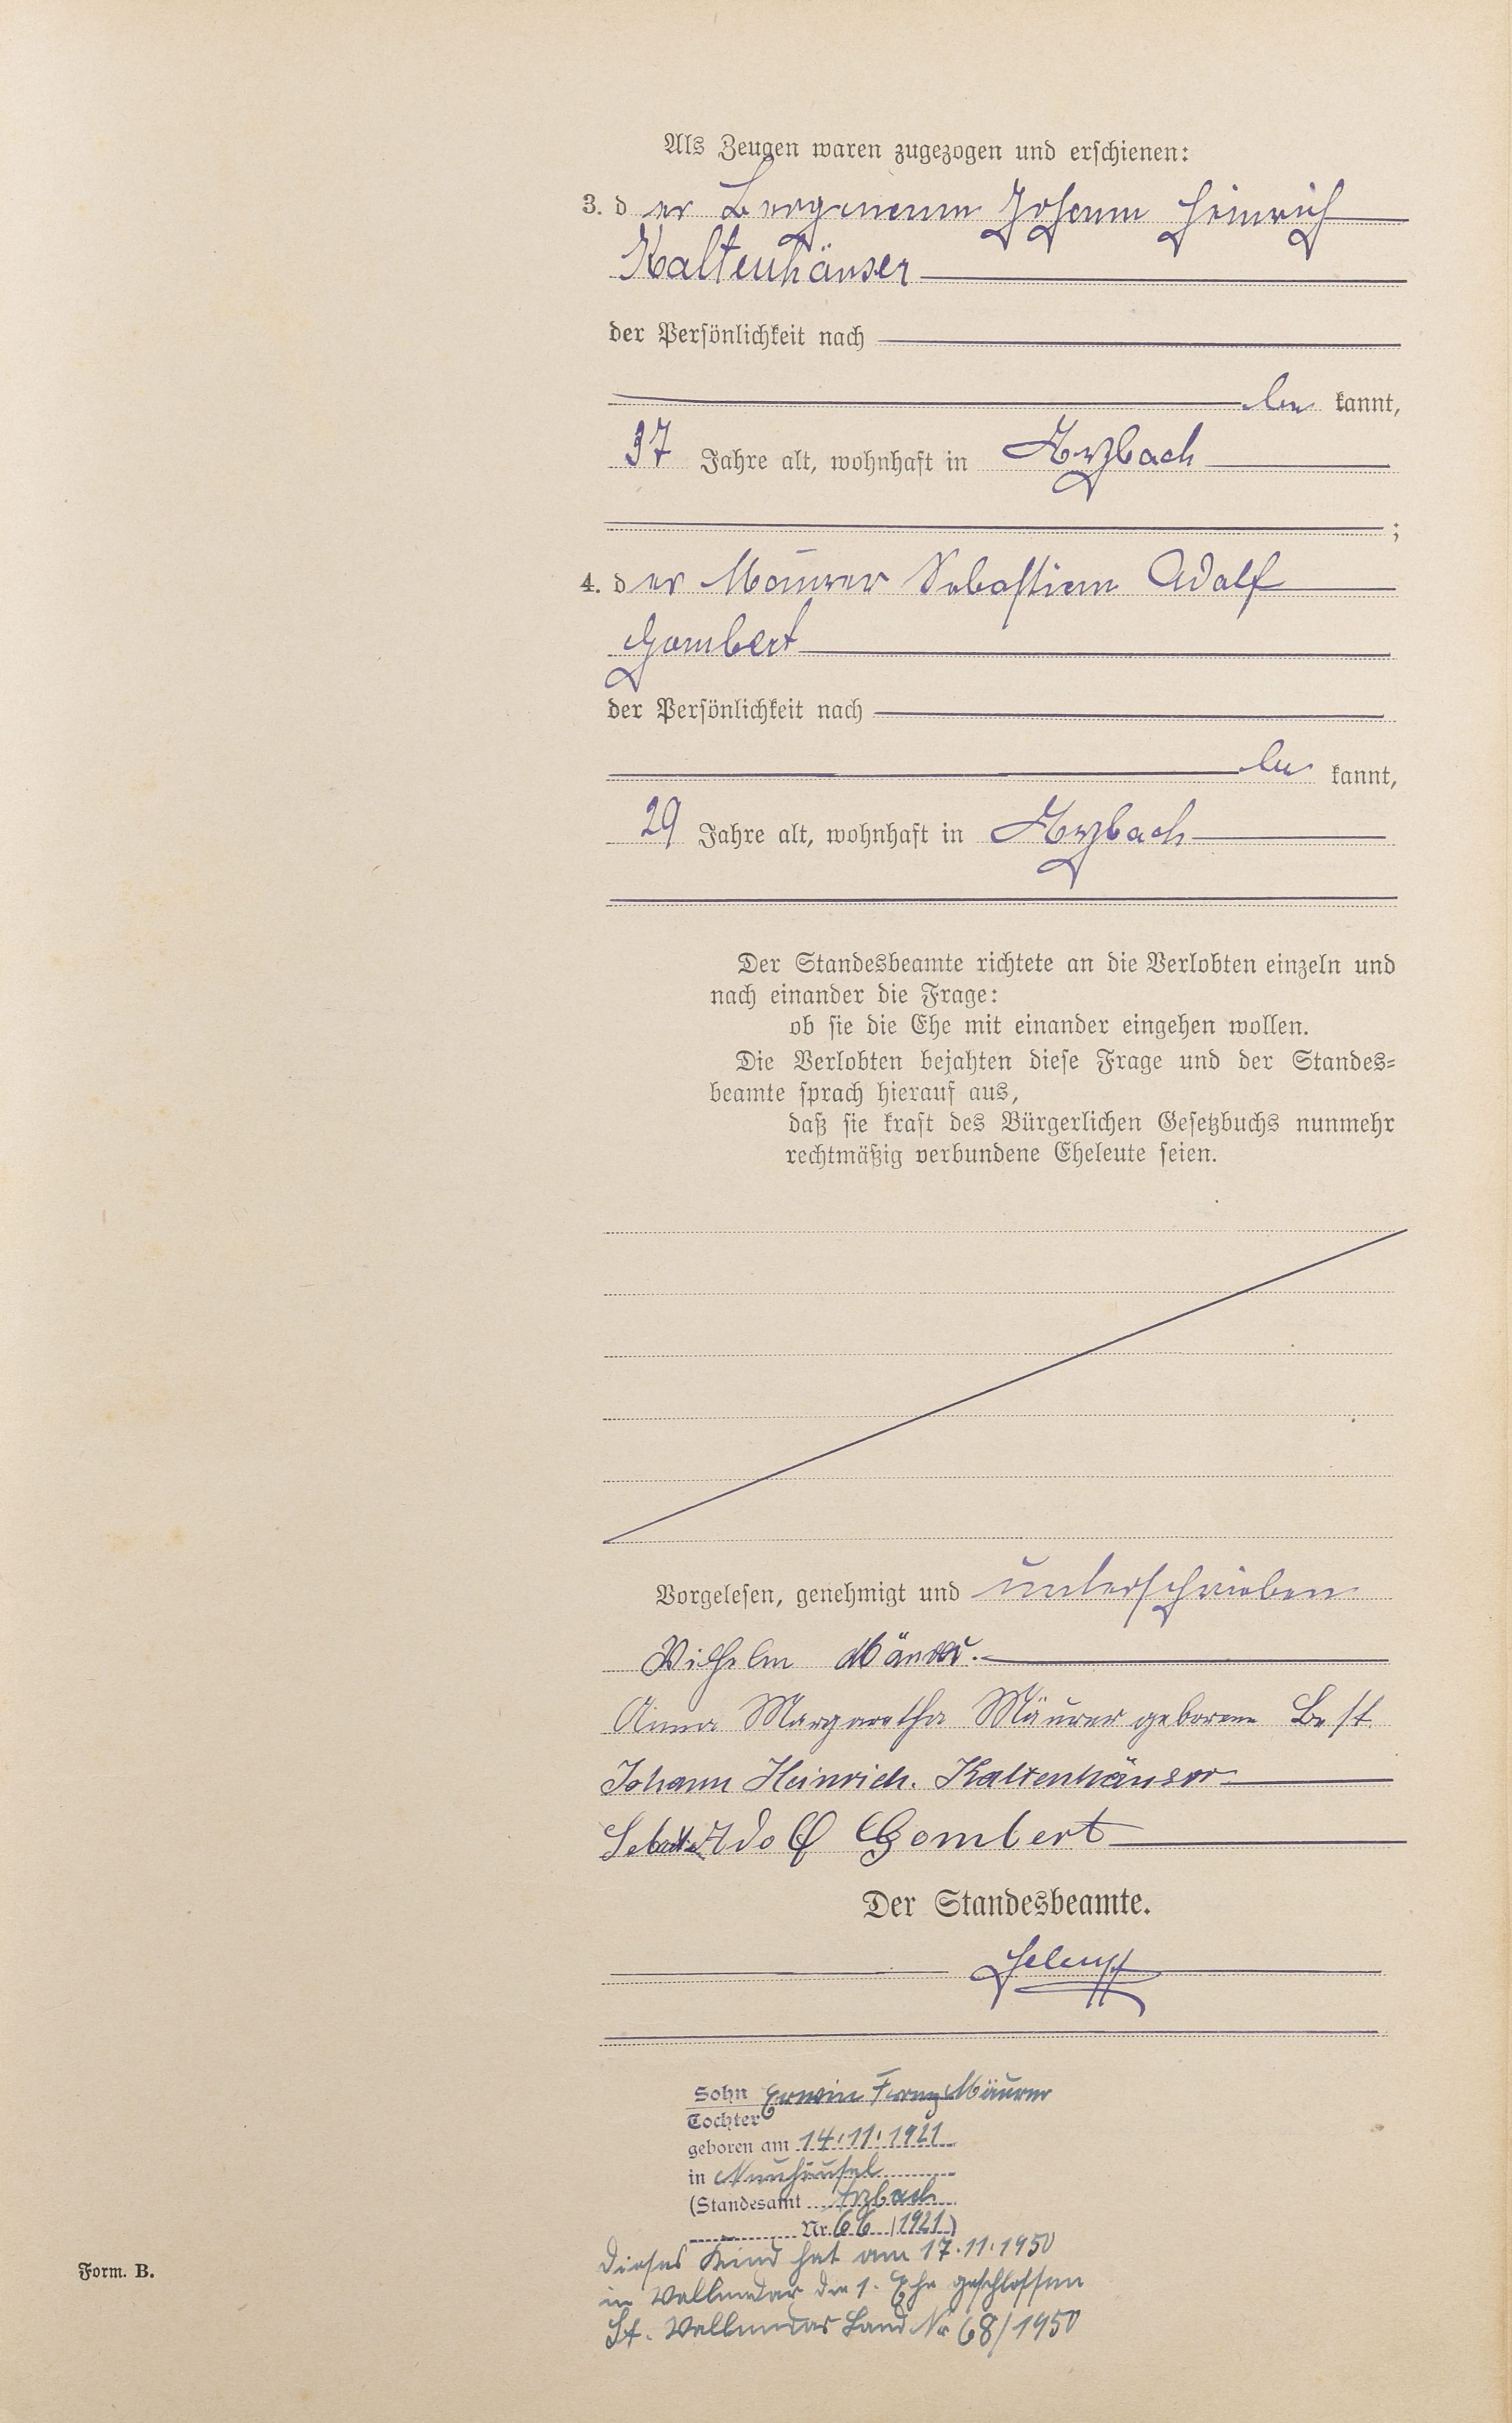 Als Zeugen waren zugezogen und erschienen:
3. der Bergmann Johann Heinrich
Kaltenhäuser
der Persönlichkeit nach
be kannt,
37 Jahre alt, wohnhaft in Arzbach
;
4. der Maurer Sebastian Adolf
Gombert
der Persönlichkeit nach
be kannt,
29 Jahre alt, wohnhaft in Arzbach
Der Standesbeamte richtete an die Verlobten einzeln und
nach einander die Frage:
ob sie die Ehe mit einander eingehen wollen.
Die Verlobten bejahten diese Frage und der Standes-
beamte sprach hierauf aus,
daß sie kraft des Bürgerlichen Gesetzbuchs nunmehr
rechtmäßig verbundene Eheleute seien.
Vorgelesen, genehmigt und unterschrieben
Wilhelm Mäurer.
Anna Margaretha Mäurer geborene Best
Johann Heinrich. Kaltenhäuser
Adolf Gombert
Der Standesbeamte.
Sohn Erwin Franz Mäurer
Tochter
geboren am 14.11.1921
in Neuhäusel
(Standesamt Arzbach
Nr. 66 /1921)
Dieses Kind hat am 17.11.1950
in Vallendar die 1. Ehe geschlossen
St. Vallendar Land Nr 68/1950
Form. B.